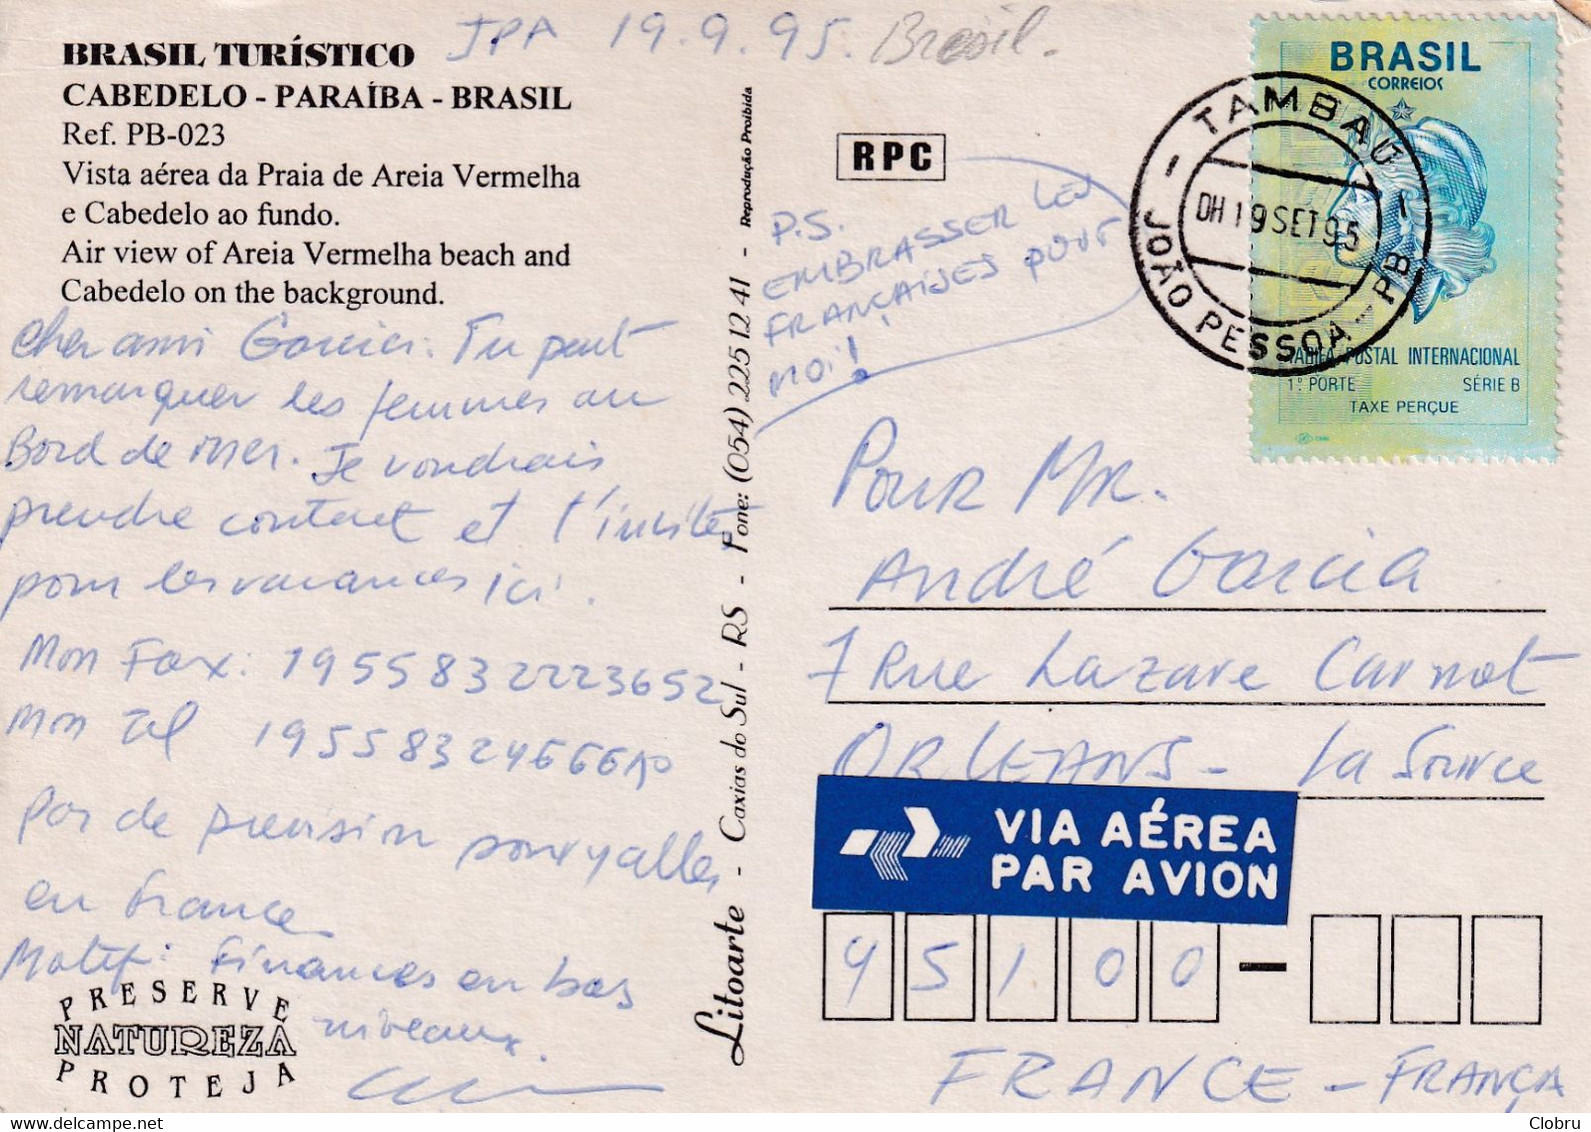 JPA 19.9.95. Bresil.
BRASIL TURÍSTICO
CABEDELO - PARAÍBA - BRASIL
Ref. PB-023
Vista aérea da Praia de Areia Vermelha
e Cabedelo ao fundo.
Air view of Areia Vermelha beach and
Cabedelo on the background.
Cher ami Garcia. Tu peut
remarquer les femmes au
Bord de mer. Je voudrais
prendre contact et t'inviter
pour les vacances ici.
Mon Fax: 1955832223652
Mon Tel 1955832466610
Pas de prevision pour y aller
en France
Motif: Finances en bas
niveaux.
PRESERVE
NATUREZA
PROTEJA
Litoarte - Caxias do Sul - RS - Fone: (054) 225 12 41 - Reprodução Proibida
RPC
P.S.
EMBRASSER LES
FRANÇAISES POUR
MOI!
BRASIL
CORREIOS
TARIFA POSTAL INTERNACIONAL
1º PORTE SÉRIE B
TAXE PERÇUE
TAMBAÚ
DH 19 SET 95
JOÃO PESSOA - PB
POUR MR.
André Garcia
7 Rue Lazare Carnot
ORLEANS - La Source
VIA AÉREA
PAR AVION
45100
FRANCE - FRANÇA
Clobru